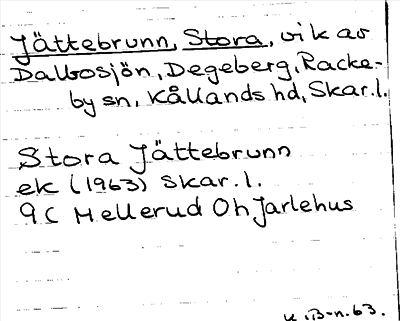 Jättebrunn, Stora, vik av
Dalbosjön, Degeberg, Racke-
by sn, Kållands hd, Skar. l.
Stora Jättebrunn
ek (1963) Skar. l.
9C Mellerud Oh Jarlehus
K. B-n. 63.